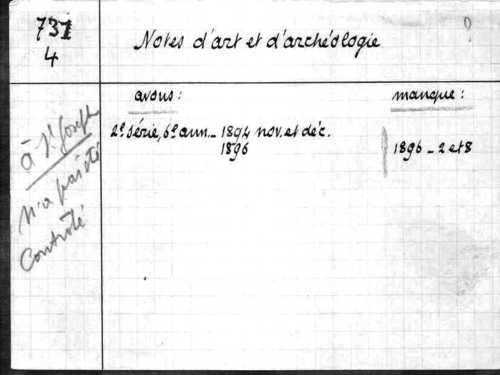 731
4
Notes d'art et d'archéologie
?
avons :
manque :
2e série, 6e ann. - 1894 nov. et déc.
1896
1896 - 2 et 8
à St Joseph
n'a pas été
contrôlé